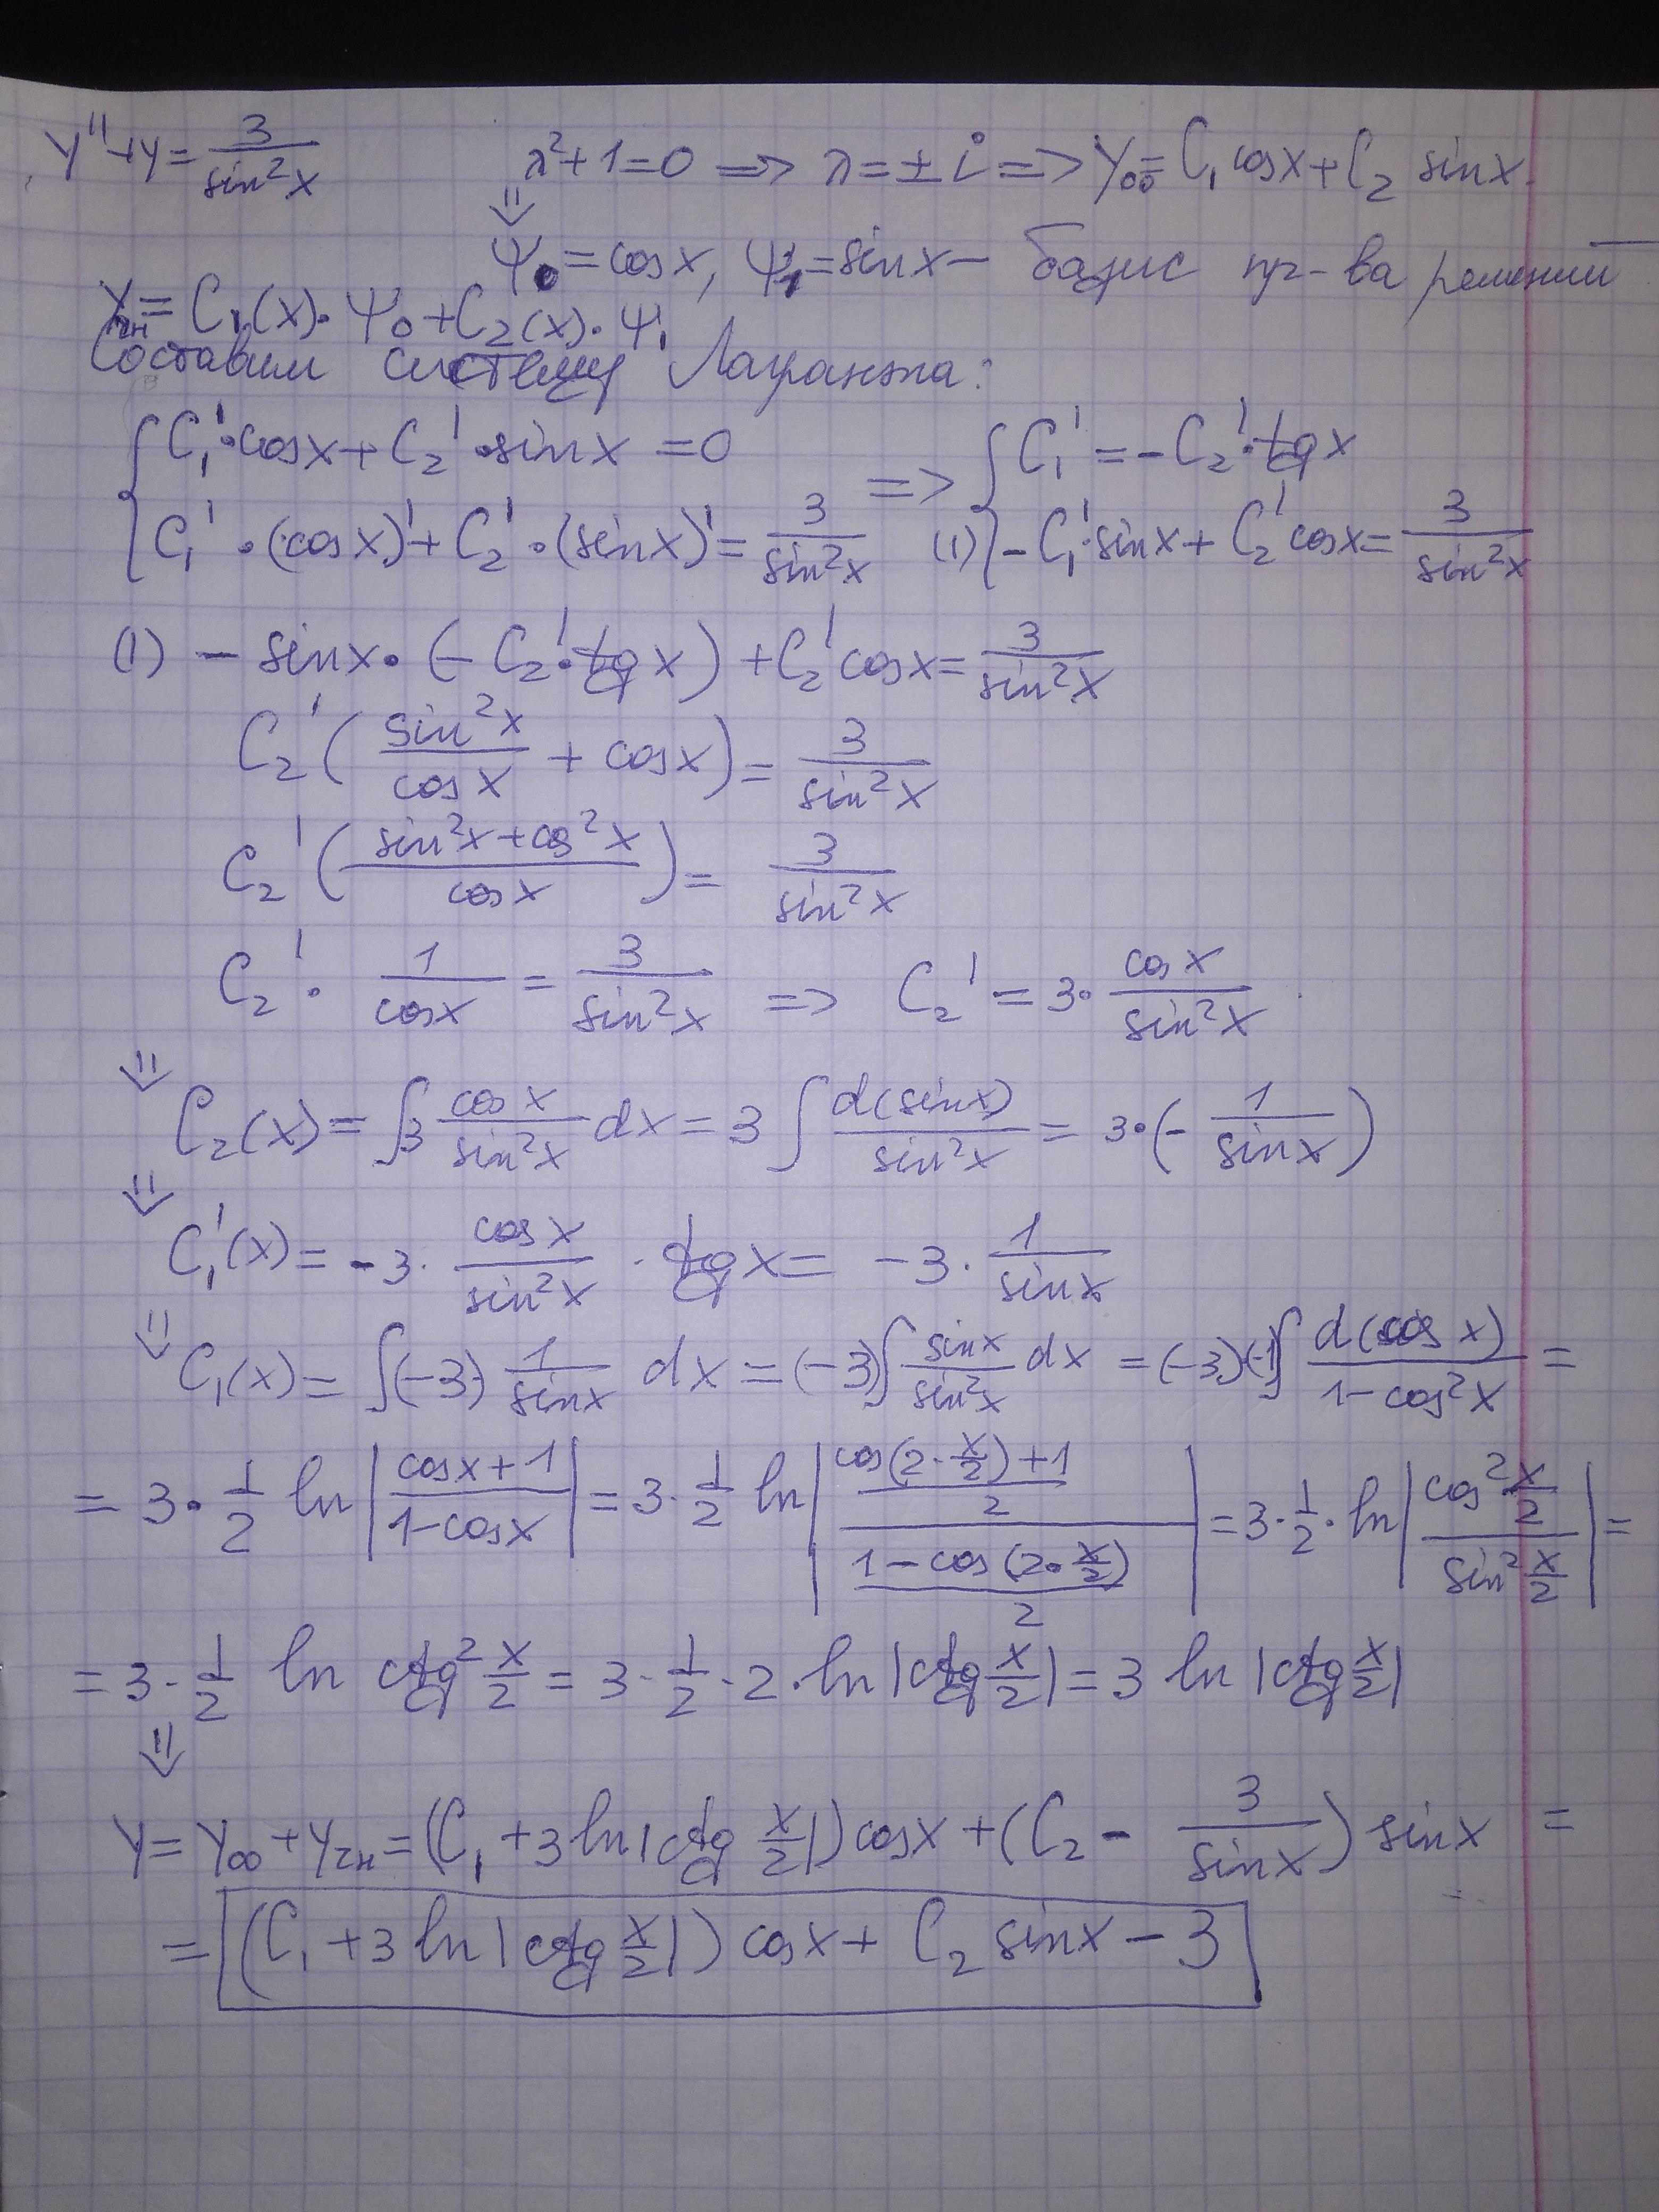 y'' + y = 3/sin²x λ² + 1 = 0 => λ = ± i => y₀₀ = C₁ cosx + C₂ sinx.
⇓
Ψ₀ = cosx, Ψ₁ = sinx – базис пр-ва решений
y_чн = C₁(x)·Ψ₀ + C₂(x)·Ψ₁
Составим систему Лагранжа:
{ C₁'·cosx + C₂'·sinx = 0 => { C₁' = -C₂'·tgx
{ C₁'·(cosx)' + C₂'·(sinx)' = 3/sin²x (1) { -C₁'·sinx + C₂'cosx = 3/sin²x
(1) - sinx·(-C₂'·tgx) + C₂'cosx = 3/sin²x
C₂'(sin²x/cosx + cosx) = 3/sin²x
C₂'((sin²x + cos²x)/cosx) = 3/sin²x
C₂'· 1/cosx = 3/sin²x => C₂' = 3· cosx/sin²x
⇓ C₂(x) = ∫3 cosx/sin²x dx = 3 ∫ d(sinx)/sin²x = 3·(- 1/sinx)
⇓ C₁'(x) = -3· cosx/sin²x · tgx = -3· 1/sinx
⇓ C₁(x) = ∫(-3)· 1/sinx dx = (-3)∫ sinx/sin²x dx = (-3)·(-1)∫ d(cosx)/(1-cos²x) =
= 3· 1/2 ln|(cosx+1)/(1-cosx)| = 3· 1/2 ln|((cos(2·x/2)+1)/2)/((1-cos(2·x/2))/2)| = 3· 1/2 · ln|cos² x/2 / sin² x/2| =
= 3· 1/2 ln ctg² x/2 = 3· 1/2 · 2 · ln|ctg x/2| = 3 ln|ctg x/2|
⇓
y = y₀₀ + y_чн = (C₁ + 3 ln|ctg x/2|) cosx + (C₂ - 3/sinx) sinx =
= (C₁ + 3 ln|ctg x/2|) cosx + C₂ sinx - 3